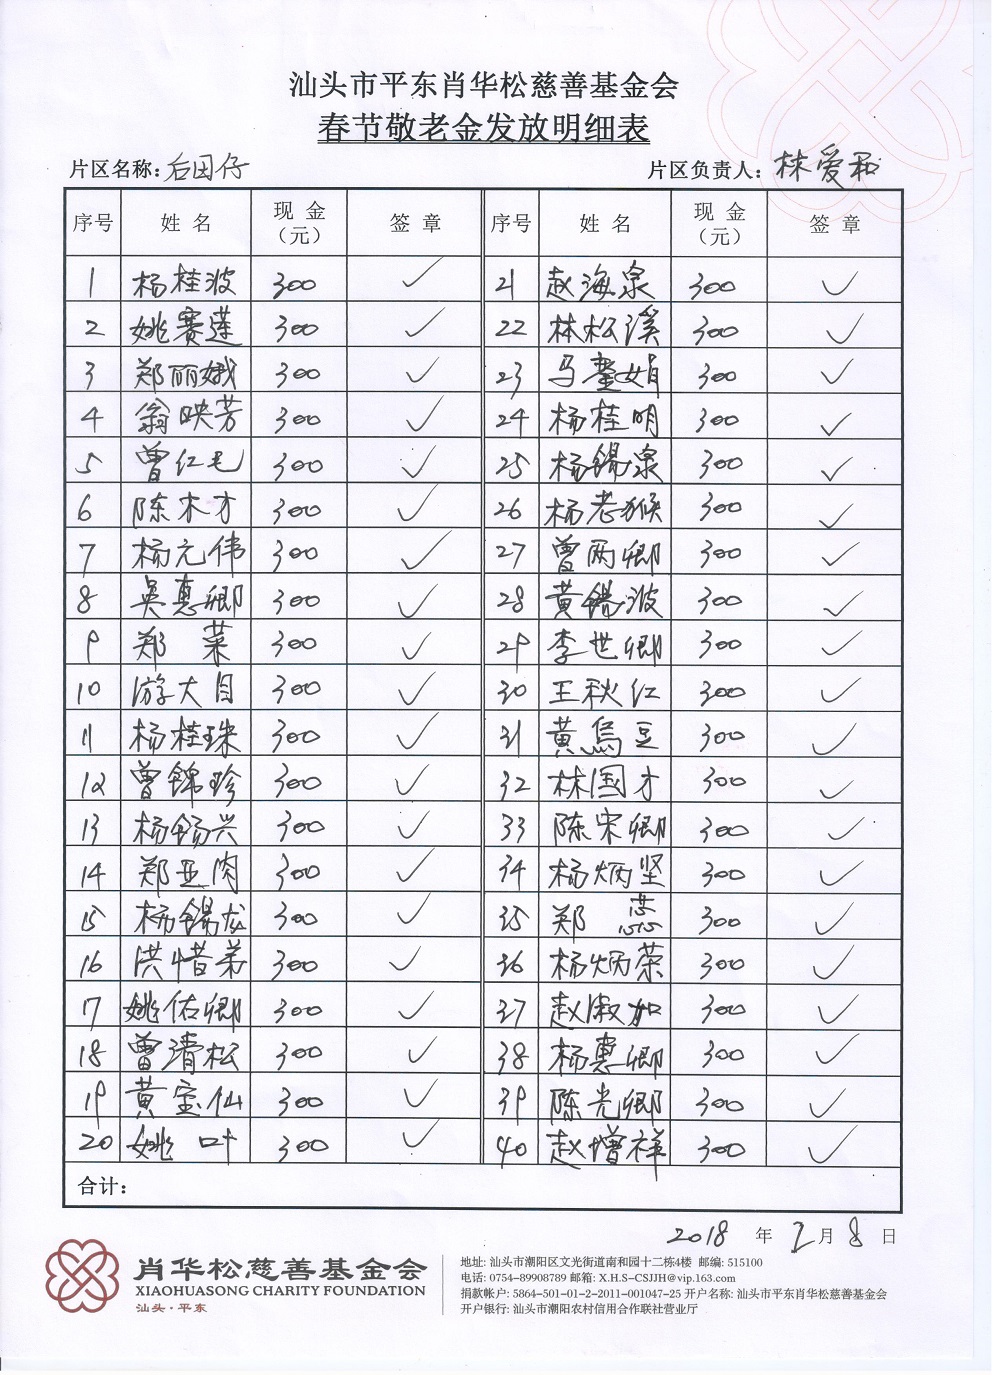 汕头市平东肖华松慈善基金会
春节敬老金发放明细表
片区名称:后田仔 片区负责人:林爱和
序号 姓名 现金(元) 签章 序号 姓名 现金(元) 签章
1 杨桂波 300 ✓ 21 赵海泉 300 ✓
2 姚赛莲 300 ✓ 22 林松溪 300 ✓
3 郑丽娥 300 ✓ 23 马 娟 300 ✓
4 翁映芳 300 ✓ 24 杨桂明 300 ✓
5 曾红毛 300 ✓ 25 杨锡泉 300 ✓
6 陈木才 300 ✓ 26 杨老猴 300 ✓
7 杨元伟 300 ✓ 27 曾两卿 300 ✓
8 吴惠卿 300 ✓ 28 黄锡波 300 ✓
9 郑 菜 300 ✓ 29 李世卿 300 ✓
10 游大目 300 ✓ 30 王秋红 300 ✓
11 杨桂珠 300 ✓ 31 黄乌豆 300 ✓
12 曾锦珍 300 ✓ 32 林国才 300 ✓
13 杨锡兴 300 ✓ 33 陈宋卿 300 ✓
14 郑亚肉 300 ✓ 34 杨炳坚 300 ✓
15 杨锡龙 300 ✓ 35 郑 300 ✓
16 洪惜弟 300 ✓ 36 杨炳荣 300 ✓
17 姚佑卿 300 ✓ 37 赵淑加 300 ✓
18 曾清松 300 ✓ 38 杨惠卿 300 ✓
19 黄宝仙 300 ✓ 39 陈光卿 300 ✓
20 姚叶 300 ✓ 40 赵增祥 300 ✓
合计:
2018 年 2 月 8 日
肖华松慈善基金会
XIAOHUASONG CHARITY FOUNDATION
汕头·平东
地址: 汕头市潮阳区文光街道南和园十二栋4楼 邮编: 515100
电话: 0754-89908789 邮箱: X.H.S-CSJJH@vip.163.com
捐款帐户: 5864-501-01-2-2011-001047-25 开户名称: 汕头市平东肖华松慈善基金会
开户银行: 汕头市潮阳农村信用合作联社营业厅